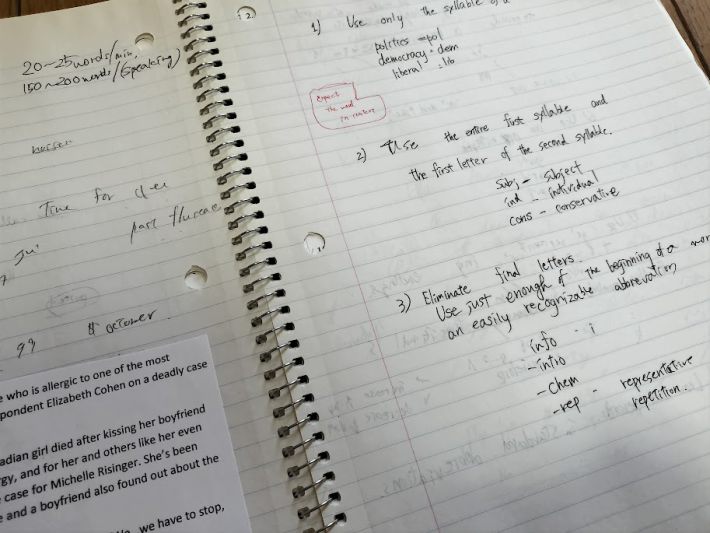 20~25 words/min.
150~200 words/(speaking)
Time for
part
8 october
99
e who is allergic to one of the most
pondent Elizabeth Cohen on a deadly case
adian girl died after kissing her boyfriend
gy, and for her and others like her even
case for Michelle Risinger. She's been
e and a boyfriend also found out about the
we have to stop,
2.
1) Use only the syllable of a
politics = pol
democracy = dem
liberal = lib
Expect
the word
in context
2) Use the entire first syllable and
the first letter of the second syllable.
subj - subject
ind - individual
cons - conservative
3) Eliminate final letters.
Use just enough of the beginning of a wor
an easily recognizable abbrevation
info - i
- intro
- Chem
- rep - representative
repetition.